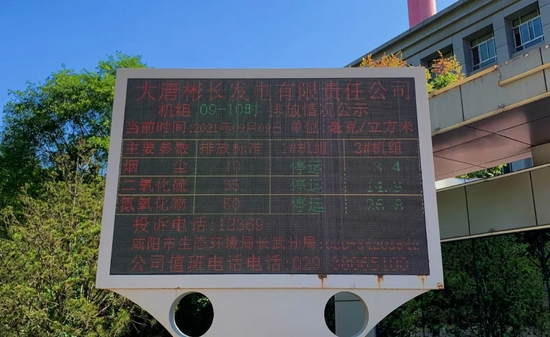 大唐彬长发电有限责任公司
机组 09-10时 排放情况公示
当前时间:2021年09月 单位:毫克/立方米
主要参数 排放标准 1#机组 2#机组
烟 尘 10 停运 3.4
二氧化硫 35 停运
氮氧化物 50 停运 26.9
投诉电话:12369
咸阳市生态环境局长武分局:
公司值班电话电话:029